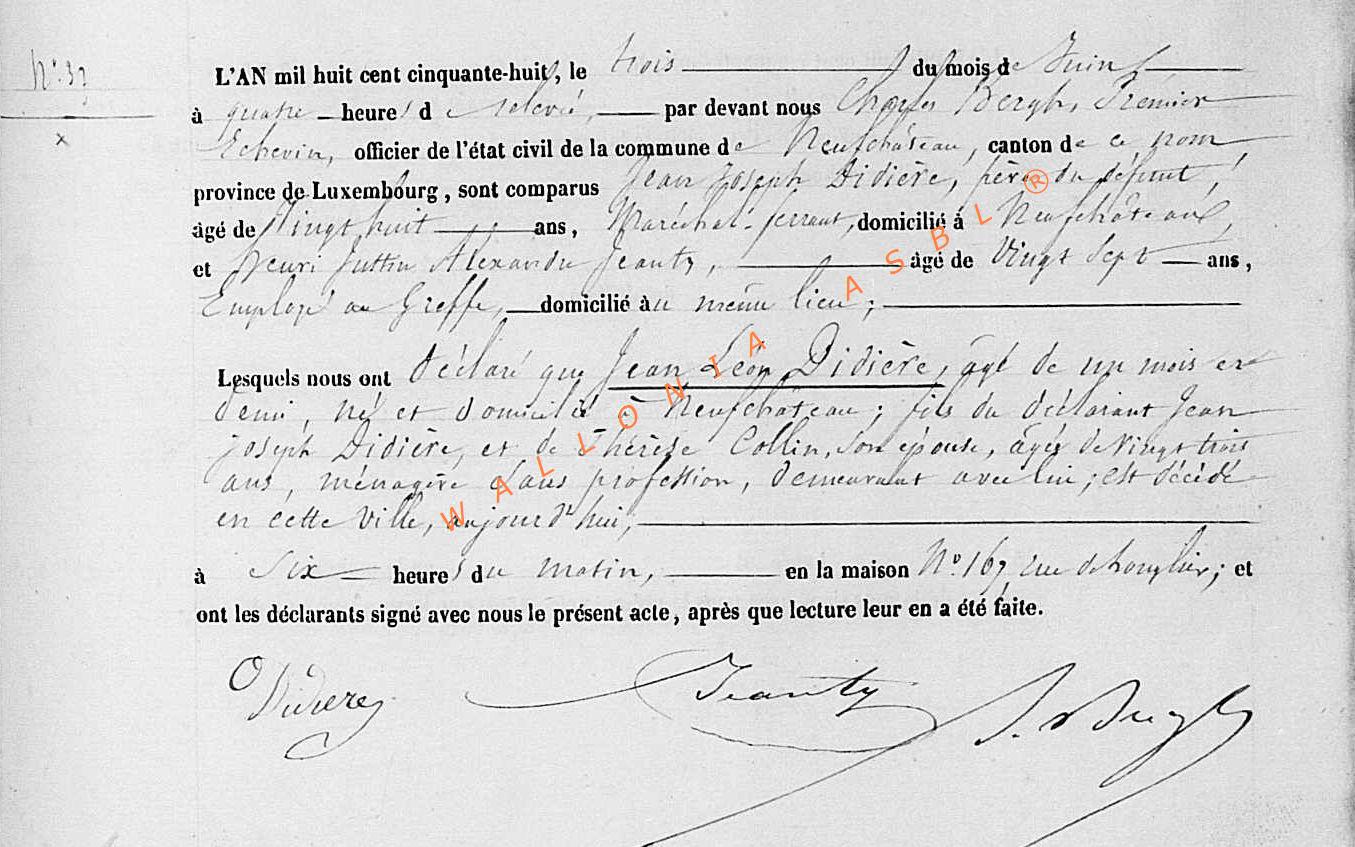 N° 37
L'AN mil huit cent cinquante-huit, le trois du mois de Juin
à quatre heures de relevée, par devant nous Charles Bergh, Premier
Echevin, officier de l'état civil de la commune de Neufchâteau, canton de ce nom
province de Luxembourg, sont comparus Jean Joseph Didière, père du défunt,
âgé de Vingt huit ans, Maréchal-ferrant, domicilié à Neufchâteau,
et Henri Justin Alexandre Jeanty, âgé de Vingt Sept ans,
Employé au Greffe, domicilié au même lieu;
Lesquels nous ont déclaré que Jean Léon Didière, âgé de un mois et
demi, né et domicilié à Neufchâteau; fils du déclarant Jean
Joseph Didière, et de Thérèse Collin, son épouse, âgée de vingt trois
ans, ménagère sans profession, demeurant avec lui; est décédé
en cette Ville, aujourd'hui,
à Six heures du matin, en la maison N° 167, rue de; et
ont les déclarants signé avec nous le présent acte, après que lecture leur en a été faite.
Didiere Jeanty Bergh
WALLONIA ASBL ®